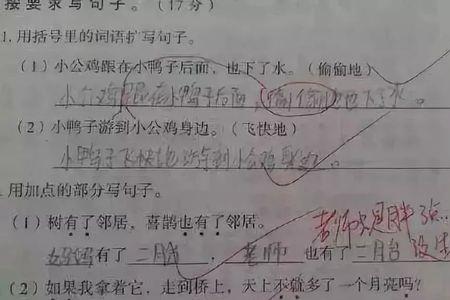 按要求写句子。(17分)
1.用括号里的词语扩写句子。
(1)小公鸡跟在小鸭子后面,也下了水。(偷偷地)
小公鸡跟在小鸭子后面,偷偷地也下了水。
(2)小鸭子游到小公鸡身边。(飞快地)
小鸭子飞快地游到小公鸡身边。
.用加点的部分写句子。
(1)树有了邻居,喜鹊也有了邻居。
老师只是胖了点
妈妈有了二月台,老师也有了二月台 没
(2)如果我拿着它,走到桥上,天上不就多了一个月亮吗?